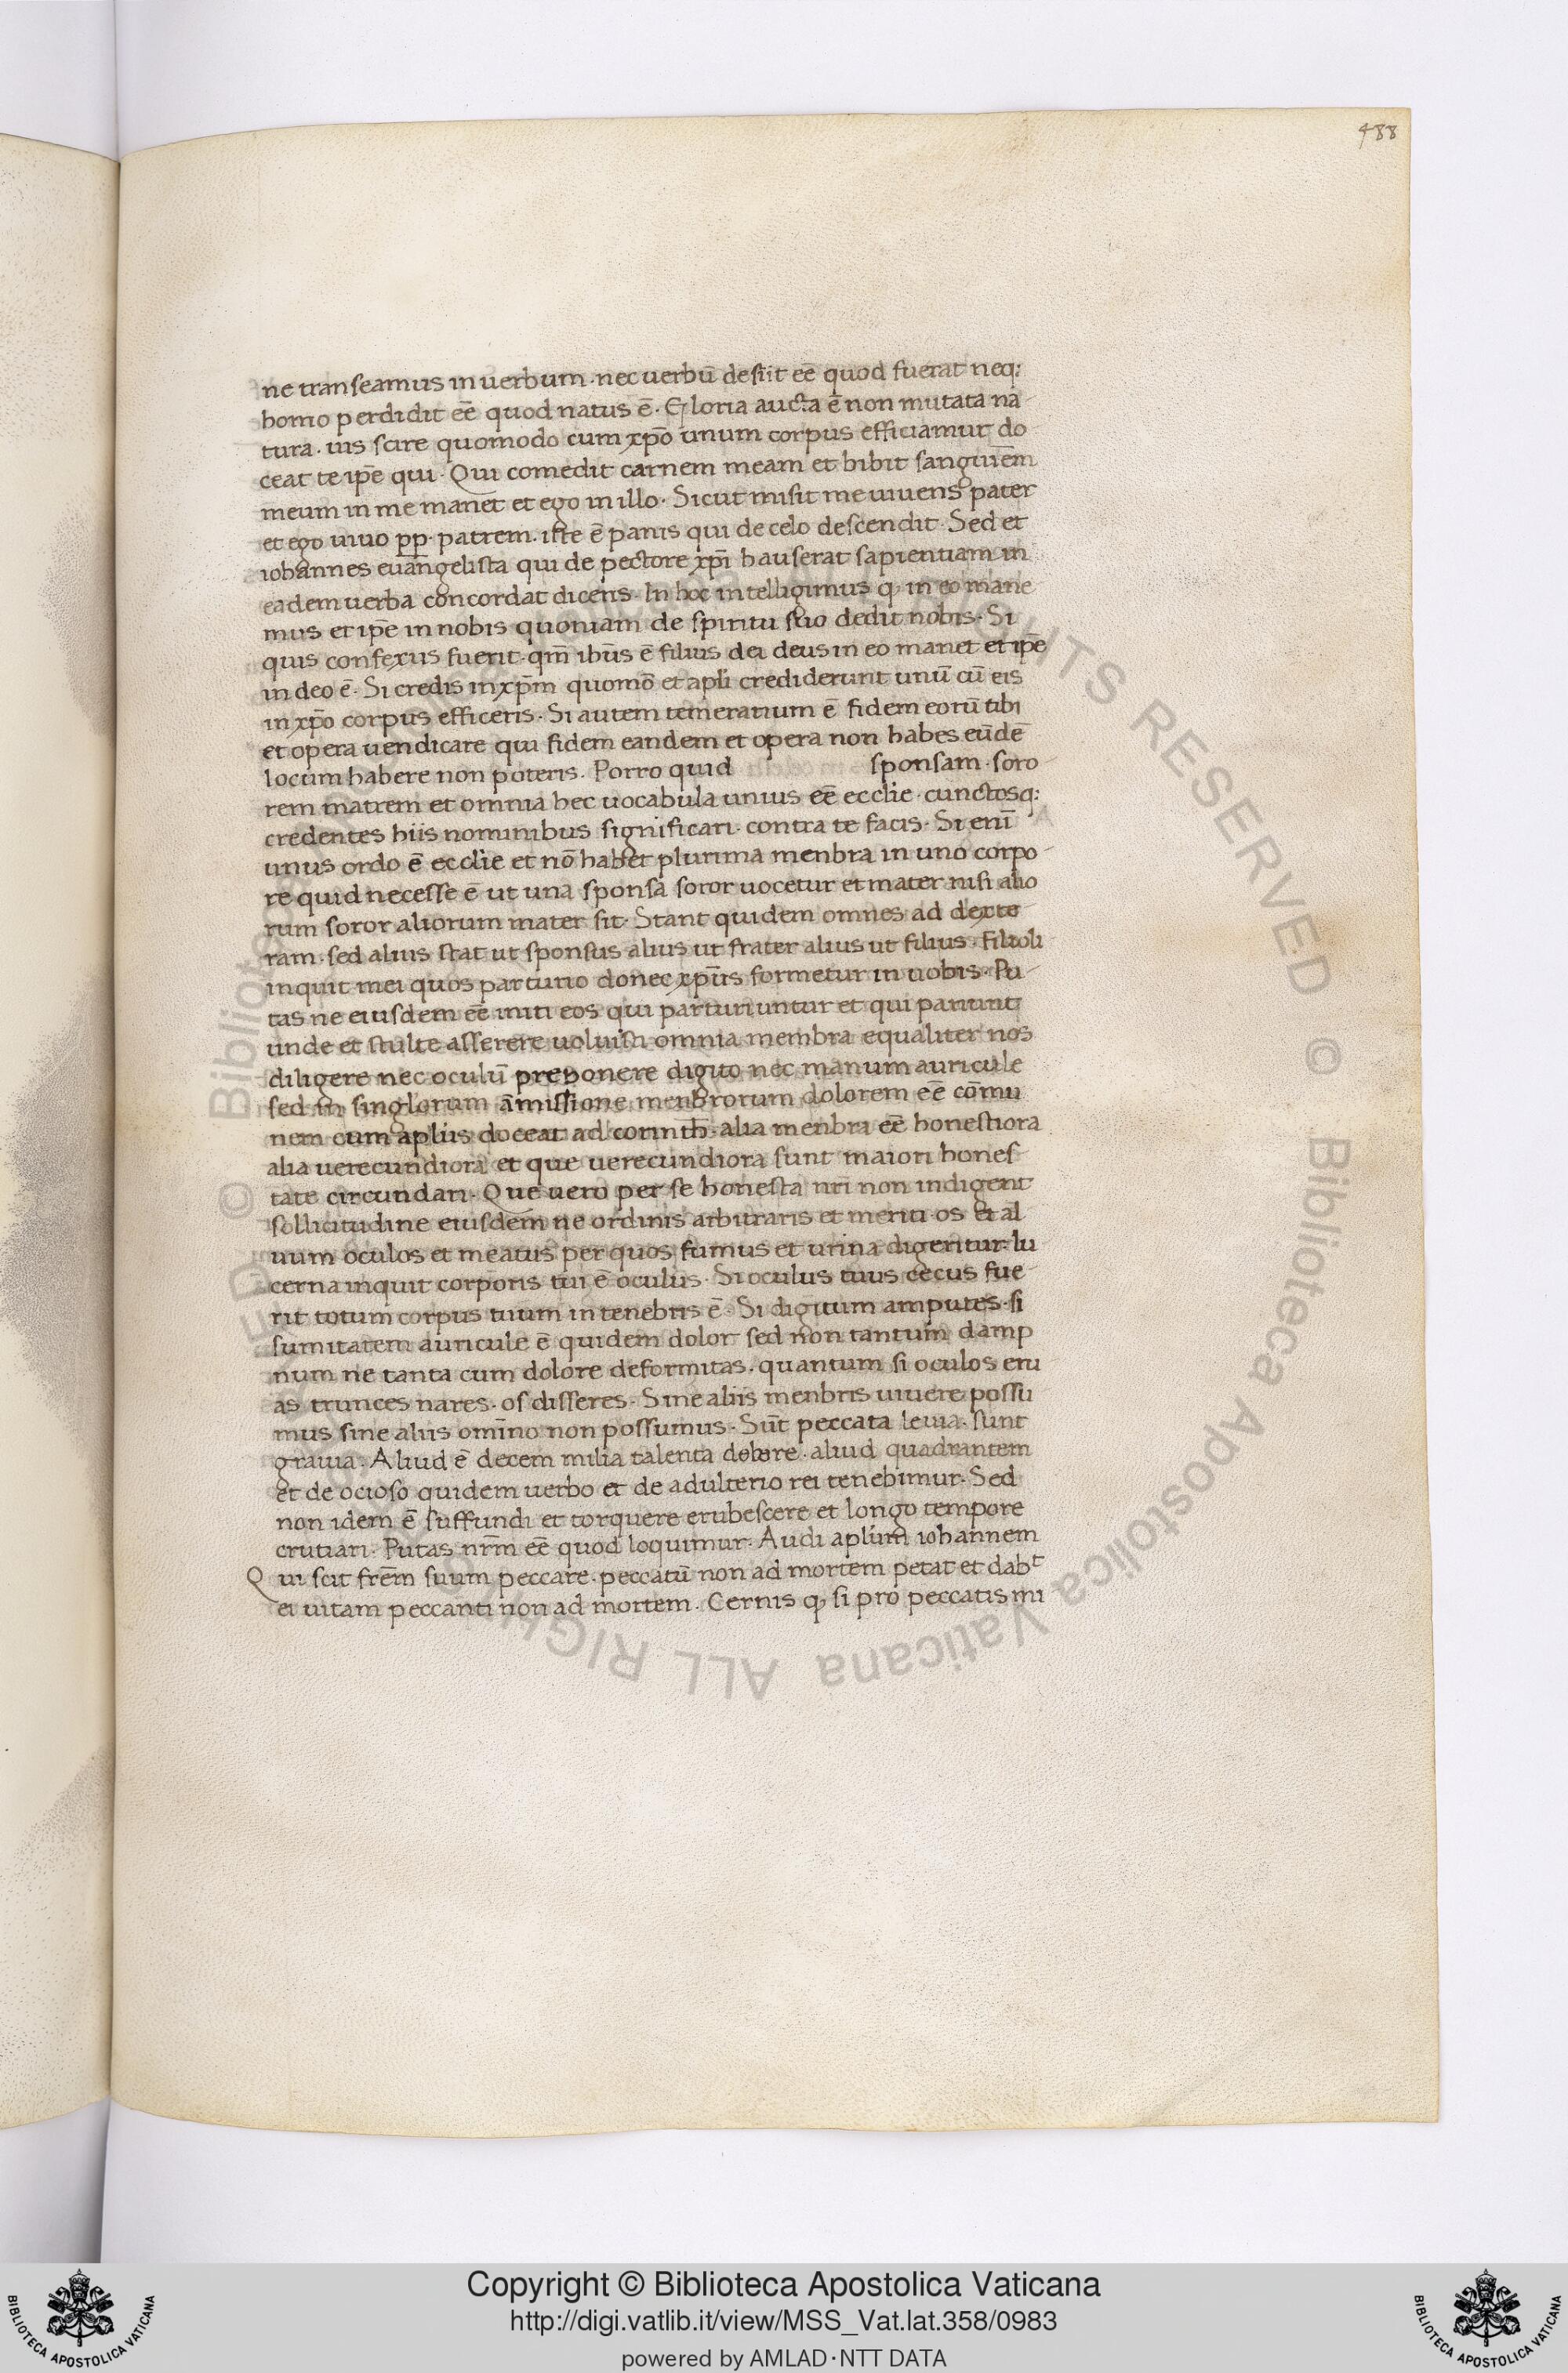 488
ne transeamus in uerbum · nec uerbū desiit eē quod fuerat neq;
homo perdidit eē quod natus ē · Gloria aucta ē non mutata na
tura · uis scire quomodo cum xp̄o unum corpus efficiamur do
ceat te ip̄e qui · Qui comedit carnem meam et bibit sanguinem
meum in me manet et ego in illo · Sicut misit me uiuens pater
et ego uiuo pp̄ · patrem · iste ē panis qui de celo descendit · Sed et
iohannes euangelista qui de pectore xp̄i hauserat sapientiam in
eadem uerba concordat dicens · In hoc intelligimus ꝙ in eo mane
mus et ip̄e in nobis quoniam de spiritu suo dedit nobis · Si
quis confexus fuerit · qm̄ ihūs ē filius dei deus in eo manet et ip̄e
in deo ē · Si credis in xp̄m quomō et apli crediderunt unū cū eis
in xp̄o corpus efficeris · Si autem temerarium ē fidem eorū tibi
et opera uendicare qui fidem eandem et opera non habes eūdē
locum habere non poteris · Porro quid sponsam · soro
rem matrem et omnia hec uocabula unius eē ecclie · cunctosq;
credentes hiis nominibus significari · contra te facis · Si enī
unus ordo ē ecclie et nō habet plurima menbra in uno corpo
re quid necesse ē ut una sponsa soror uocetur et mater nisi alio
rum soror aliorum mater sit · Stant quidem omnes ad dexte
ram · sed alius stat ut sponsus alius ut frater alius ut filius · Filioli
inquit mei quos parturio donec xp̄us formetur in uobis · Pu
tas ne eiusdem eē miti eos qui parturiuntur et qui pariunt
unde et stulte asserere uoluisti omnia membra equaliter nos
diligere nec oculū preponere digito nec manum auricule
sed in singlorum āmissione menbrorum dolorem eē cōmu
nem cum aplus doceat ad corinth̄ · alia menbra eē honestiora
alia uerecundiora et que uerecundiora sunt maiori hones
tate circundari · Que uero per se honesta nr̄i non indigent
sollicitudine eiusdem ne ordinis arbitraris et meriti os et al
uum oculos et meatus per quos fumus et urina digeritur · lu
cerna inquit corporis tui ē oculus · Si oculus tuus cecus fue
rit totum corpus tuum in tenebris ē · Si digitum amputes · si
sumitatem auricule ē quidem dolor sed non tantum damp
num ne tanta cum dolore deformitas · quantum si oculos eru
as trunces nares · os disseres · Sine aliis menbris uiuere possu
mus sine aliis omīno non possumus · Sūt peccata leuia · sunt
grauia · Aliud ē decem milia talenta debere · aliud quadrantem
et de ocioso quidem uerbo et de adulterio rei tenebimur · Sed
non idem ē suffundi et torquere erubescere et longo tempore
crutiari · Putas nr̄m eē quod loquimur · Audi aplum iohannem
Qui scit frēm suum peccare · peccatū non ad mortem petat et dabᵗ
ei uitam peccanti non ad mortem · Cernis ꝙ si pro peccatis mi
Copyright © Biblioteca Apostolica Vaticana
http://digi.vatlib.it/view/MSS_Vat.lat.358/0983
powered by AMLAD·NTT DATA